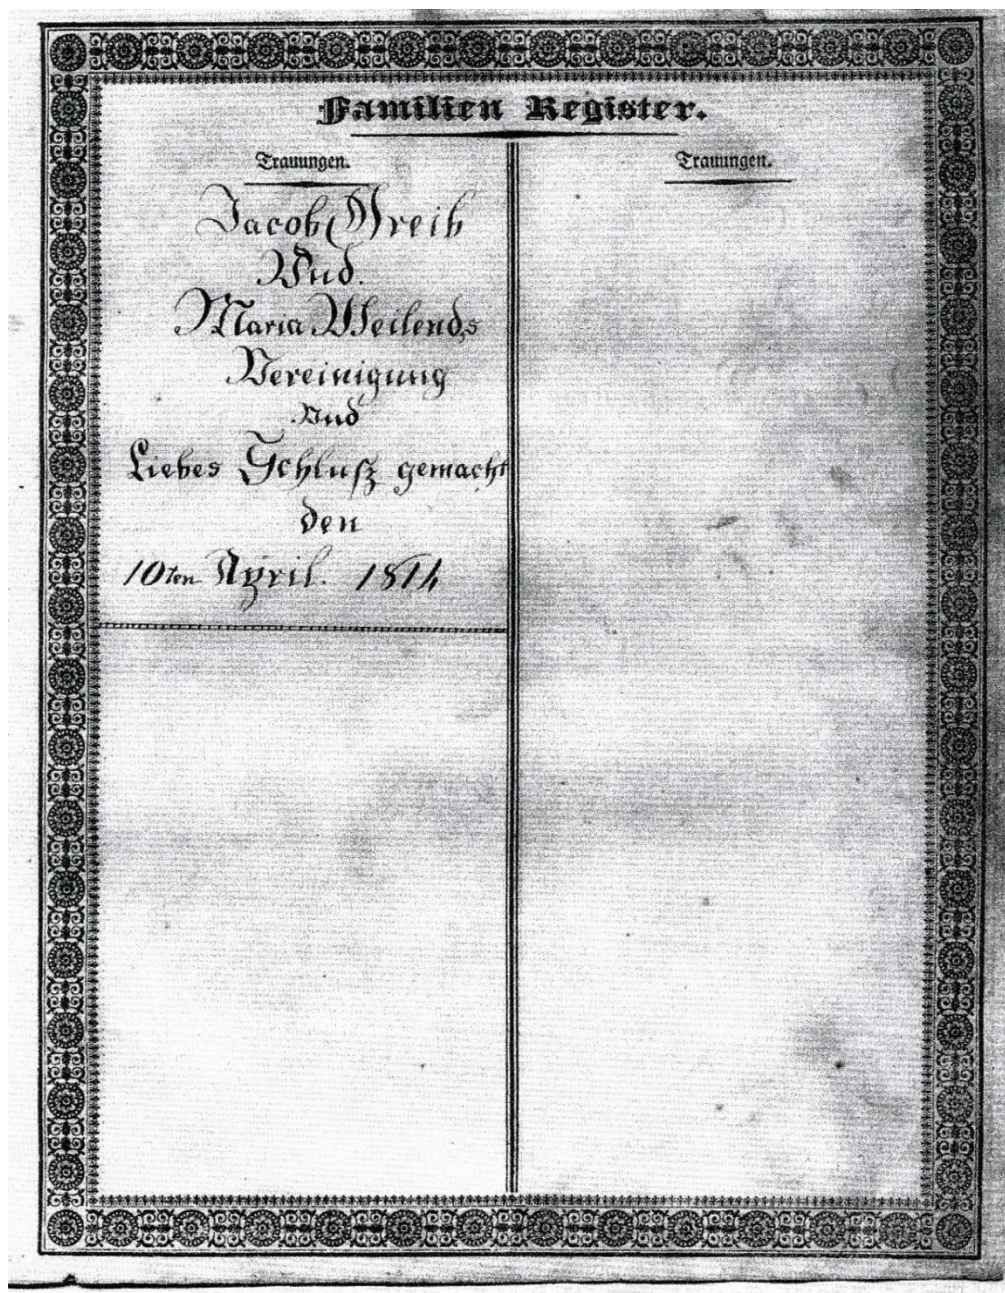 Familien Register.
Trauungen.
Jacob Greib
Und.
Maria Weilends
Vereinigung
und
Liebes Schluß gemacht
den
10ten April. 1814
Trauungen.